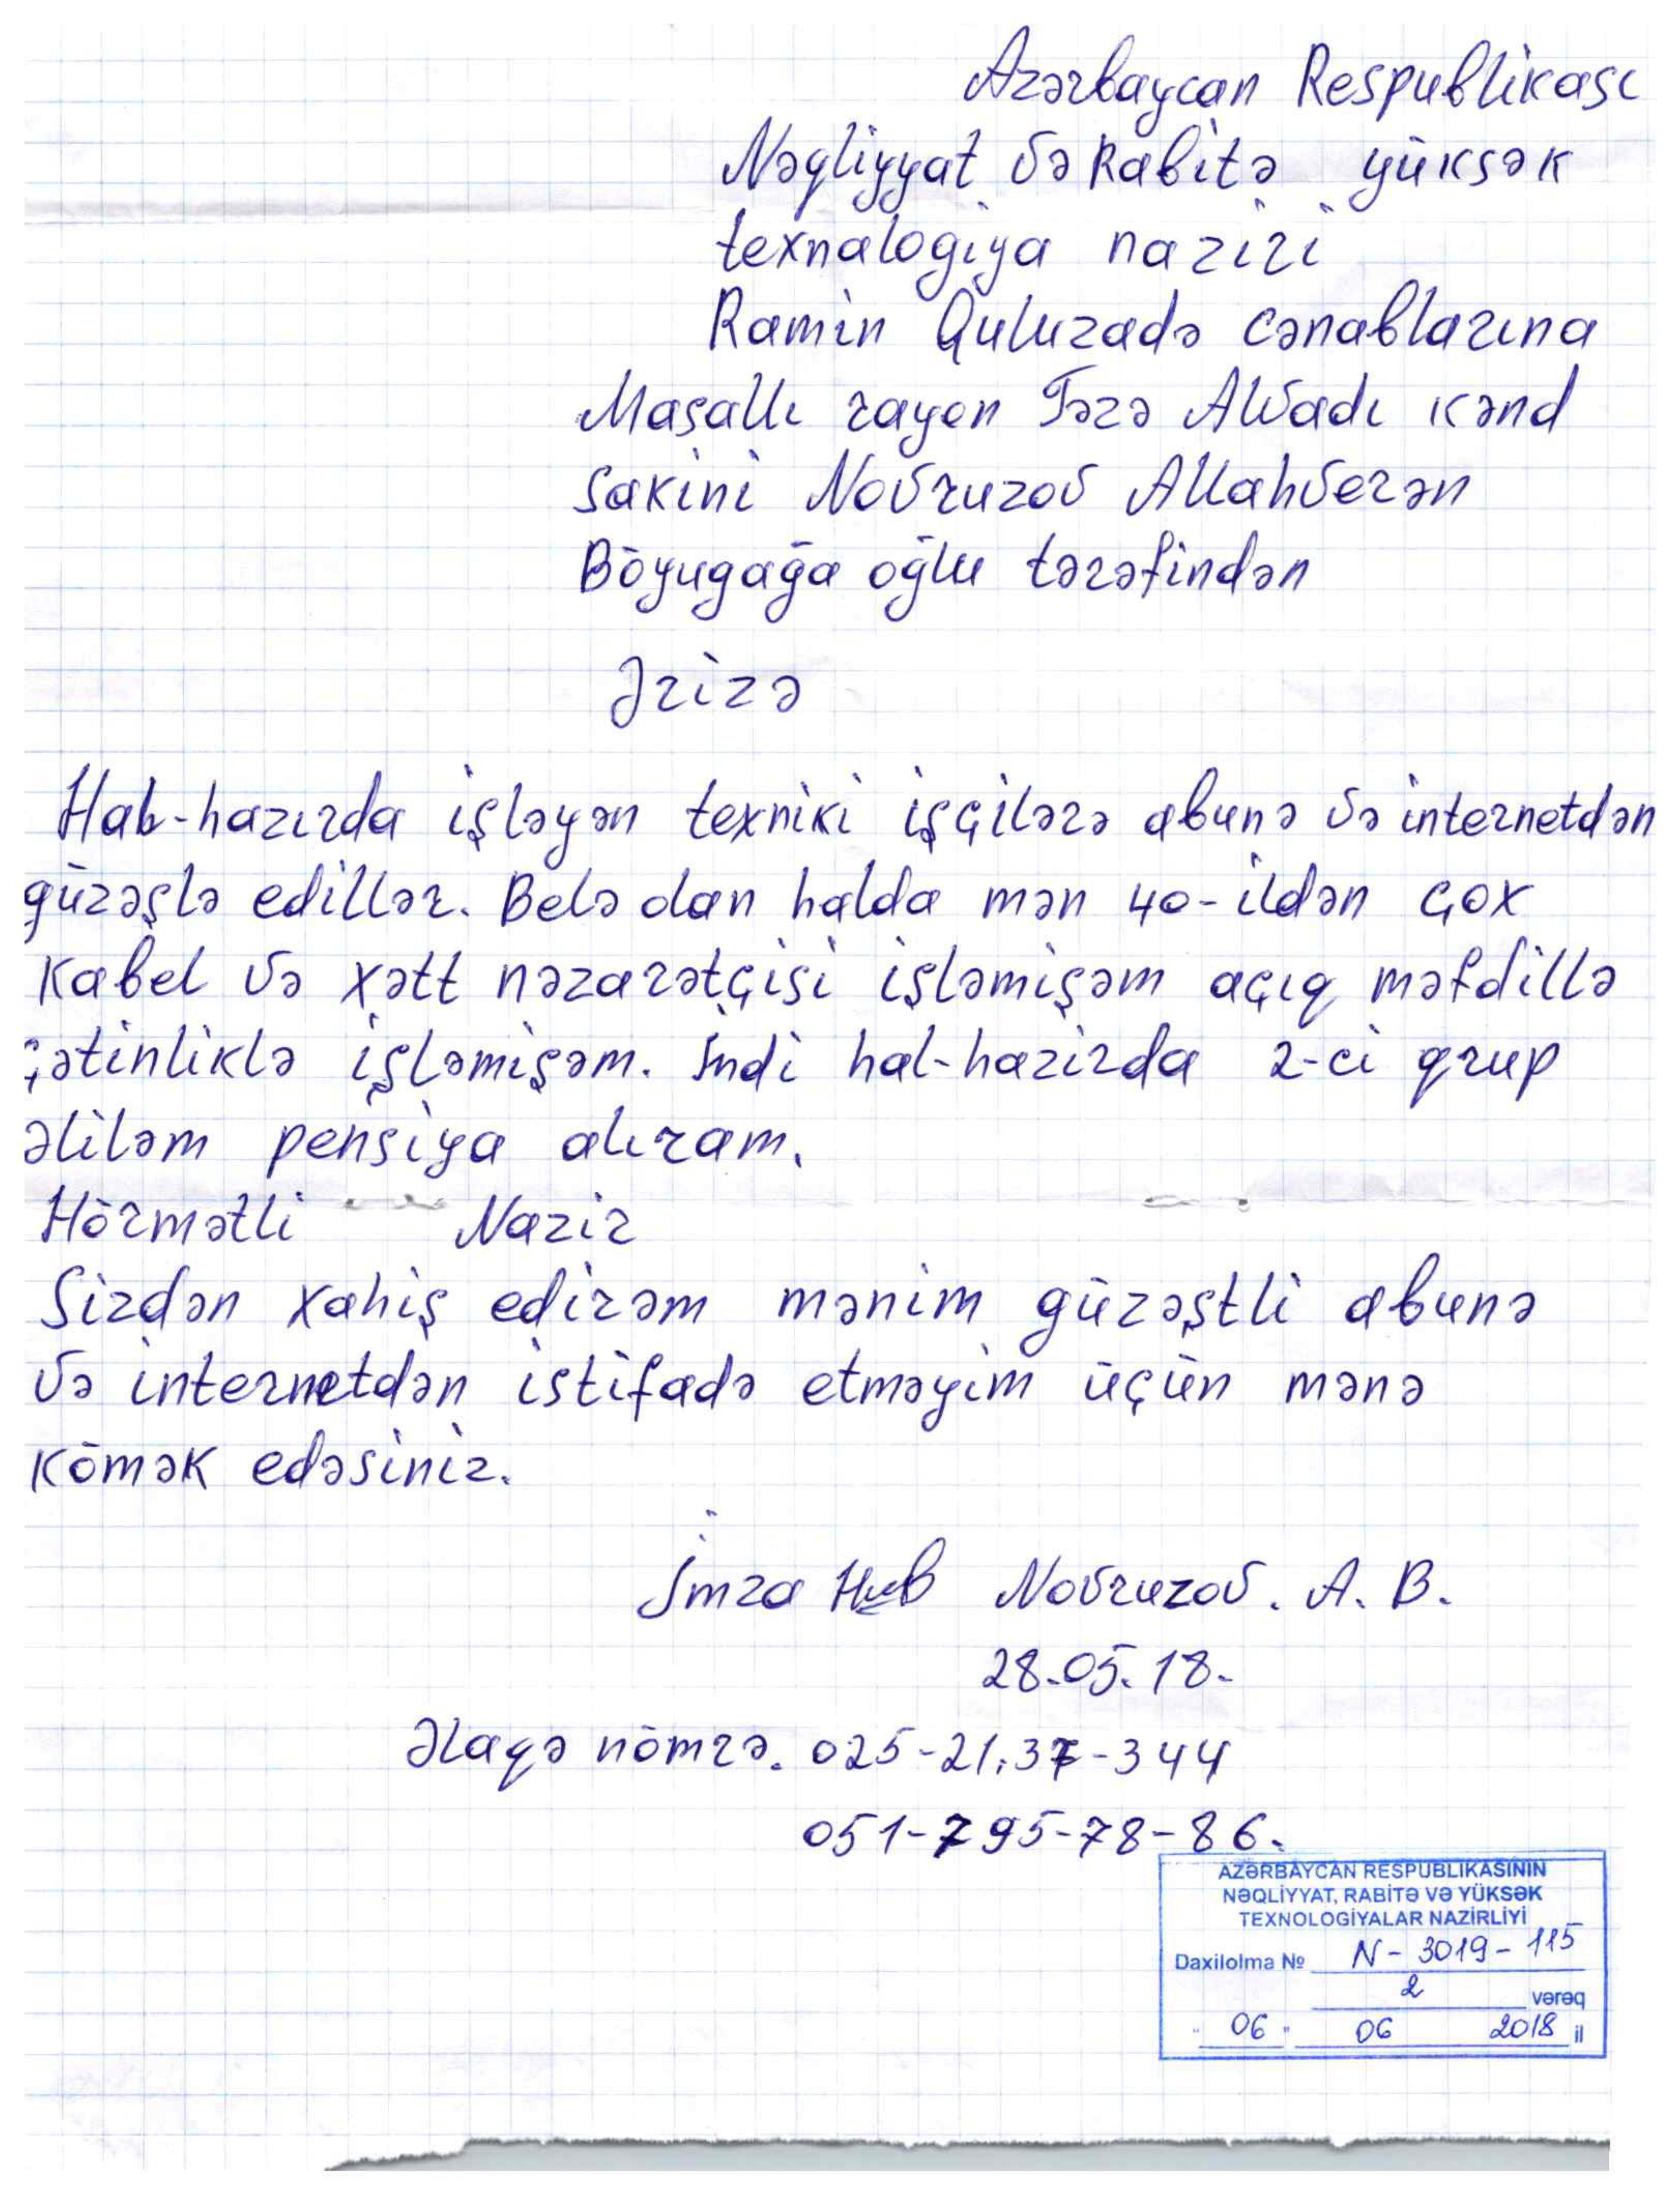 Azərbaycan Respublikası
Nəqliyyat və Rabitə yüksək
texnalogiya naziri
Ramin Quluzadə cənablarına
Masallı rayon Təzə Alvadı kənd
sakini Novruzov Allahverən
Böyugağa oğlu tərəfindən
Ərizə
Hal-hazırda işləyən texniki işçilərə abunə və internetdən
güzəşlə edillər. Belə olan halda mən 40-ildən çox
kabel və xətt nəzarətçisi işləmişəm açıq məfdillə
çətinliklə işləmişəm. İndi hal-hazirda 2-ci qrup
əliləm pensiya alıram.
Hörmətli Nazir
Sizdən xahiş edirəm mənim güzəştli abunə
və internetdən istifadə etməyim üçün mənə
kömək edəsiniz.
İmza Novruzov. A. B.
28.05.18.
Əlaqə nömrə. 025-21.37-344
051-795-78-86.
AZƏRBAYCAN RESPUBLİKASININ
NƏQLİYYAT, RABİTƏ VƏ YÜKSƏK
TEXNOLOGİYALAR NAZİRLİYİ
Daxilolma № N-3019-115
2 vərəq
" 06 " 06 2018 il